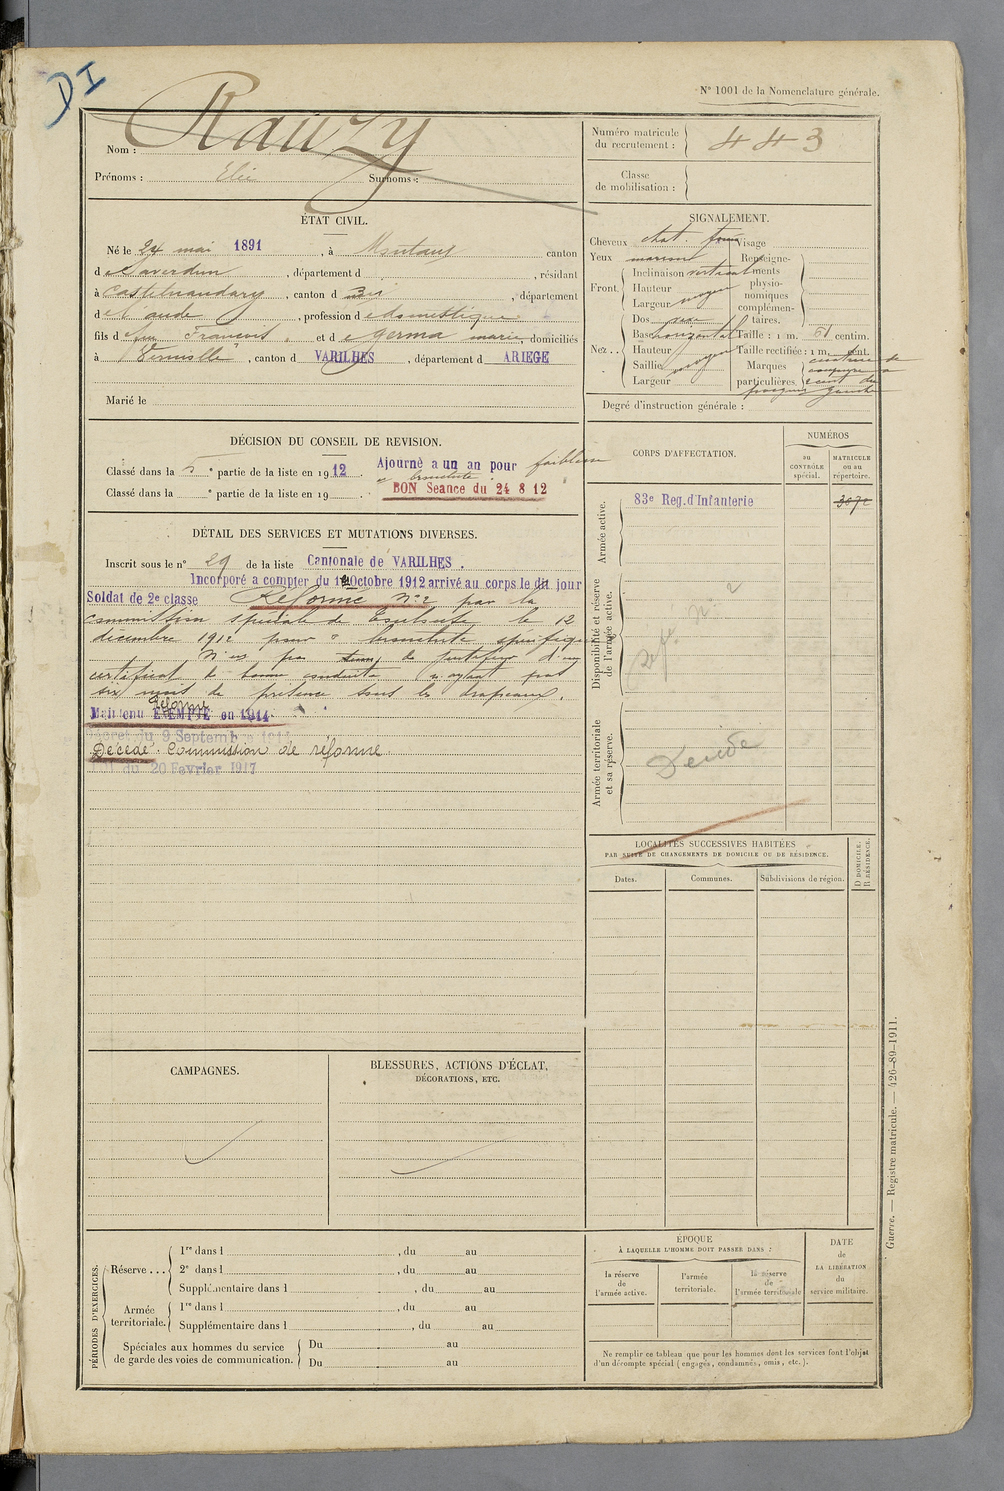 DI
N° 1001 de la Nomenclature générale.
Nom : Rauzy
Prénoms : Elie Surnoms :
Numéro matricule du recrutement : 443
Classe de mobilisation :
ÉTAT CIVIL.
Né le 24 mai 1891, à Montaut canton
de Saverdun, département d , résidant
à Castelnaudary, canton d dei, département
de l'aude, profession de domestique
fils de feu François et de Germa marie, domiciliés
à Verniolle, canton d VARILHES, département d ARIEGE
Marié le
SIGNALEMENT.
Cheveux chat. foncé Visage
Yeux marron Renseigne-
Front Inclinaison verticale ments
Hauteur physio-
Largeur moyen nomiques
complémen-
Nez Dos taires.
Base horizontale Taille : 1 m. 61 centim.
Hauteur Taille rectifiée : 1 m. cent.
Saillie moyen Marques
Largeur particulières
cicatrice de
coupure a
gauche
Degré d'instruction générale :
DÉCISION DU CONSEIL DE REVISION.
Classé dans la 5e partie de la liste en 1912. Ajourné a un an pour faiblesse
bronchite
Classé dans la e partie de la liste en 19 BON Seance du 24 8 12
CORPS D'AFFECTATION.
NUMÉROS
au CONTRÔLE spécial.
MATRICULE ou au répertoire.
Armée active.
83e Reg.d'Infanterie
Disponibilité et réserve de l'armée active.
Réf. N° 2
Armée territoriale et sa réserve.
Décédé
DÉTAIL DES SERVICES ET MUTATIONS DIVERSES.
Inscrit sous le n° 29 de la liste Cantonale de VARILHES.
Incorporé a compter du 10 Octobre 1912 arrivé au corps le dit jour
Soldat de 2e classe Réformé N°2 par la
commission spéciale de Toulouse le 12
décembre 1912 pour " bronchite spécifique
N'est pas de
certificat de bonne conduite n'ayant pas
six mois de présence sous les drapeaux.
Maintenu EXEMPTÉ en 1914
Réformé
Décret du 9 Septembre 1914
Décédé. Commission de réforme
Loi du 20 Fevrier 1917
LOCALITÉS SUCCESSIVES HABITÉES
PAR SUITE DE CHANGEMENTS DE DOMICILE OU DE RÉSIDENCE.
Dates.
Communes.
Subdivisions de région.
D DOMICILE.
R RÉSIDENCE.
CAMPAGNES.
BLESSURES, ACTIONS D'ÉCLAT,
DÉCORATIONS, ETC.
PÉRIODES D'EXERCICES.
Réserve ...
1re dans l , du au
2e dans l , du au
Supplémentaire dans l , du au
Armée territoriale.
1re dans l , du au
Supplémentaire dans l , du au
Spéciales aux hommes du service de garde des voies de communication.
Du au
Du au
ÉPOQUE
À LAQUELLE L'HOMME DOIT PASSER DANS :
la réserve de l'armée active.
l'armée territoriale.
la réserve de l'armée territoriale
DATE de LA LIBÉRATION du service militaire.
Ne remplir ce tableau que pour les hommes dont les services font l'objet
d'un décompte spécial (engagés, condamnés, omis, etc.).
Guerre. — Registre matricule. — 426-89-1911.